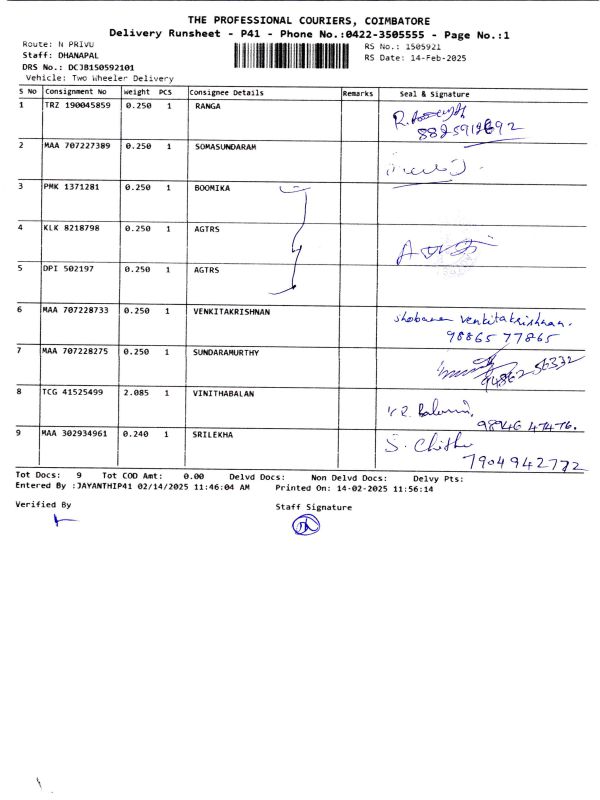 THE PROFESSIONAL COURIERS, COIMBATORE
Delivery Runsheet - P41 - Phone No.:0422-3505555 - Page No.:1
Route: N PRIVU
RS No.: 1505921
Staff: DHANAPAL
RS Date: 14-Feb-2025
DRS No.: DCJB150592101
Vehicle: Two Wheeler Delivery
S No Consignment No Weight PCS Consignee Details Remarks Seal & Signature
1 TRZ 190045859 0.250 1 RANGA
2 MAA 707227389 0.250 1 SOMASUNDARAM
3 PMK 1371281 0.250 1 BOOMIKA
4 KLK 8218798 0.250 1 AGTRS
5 DPI 502197 0.250 1 AGTRS
6 MAA 707228733 0.250 1 VENKITAKRISHNAN venkitakrishnan.
98865 77865
7 MAA 707228275 0.250 1 SUNDARAMURTHY
8 TCG 41525499 2.085 1 VINITHABALAN
98946 47476.
9 MAA 302934961 0.240 1 SRILEKHA S.
7904942772
Tot Docs: 9 Tot COD Amt: 0.00 Delvd Docs: Non Delvd Docs: Delvy Pts:
Entered By :JAYANTHIP41 02/14/2025 11:46:04 AM Printed On: 14-02-2025 11:56:14
Verified By
Staff Signature